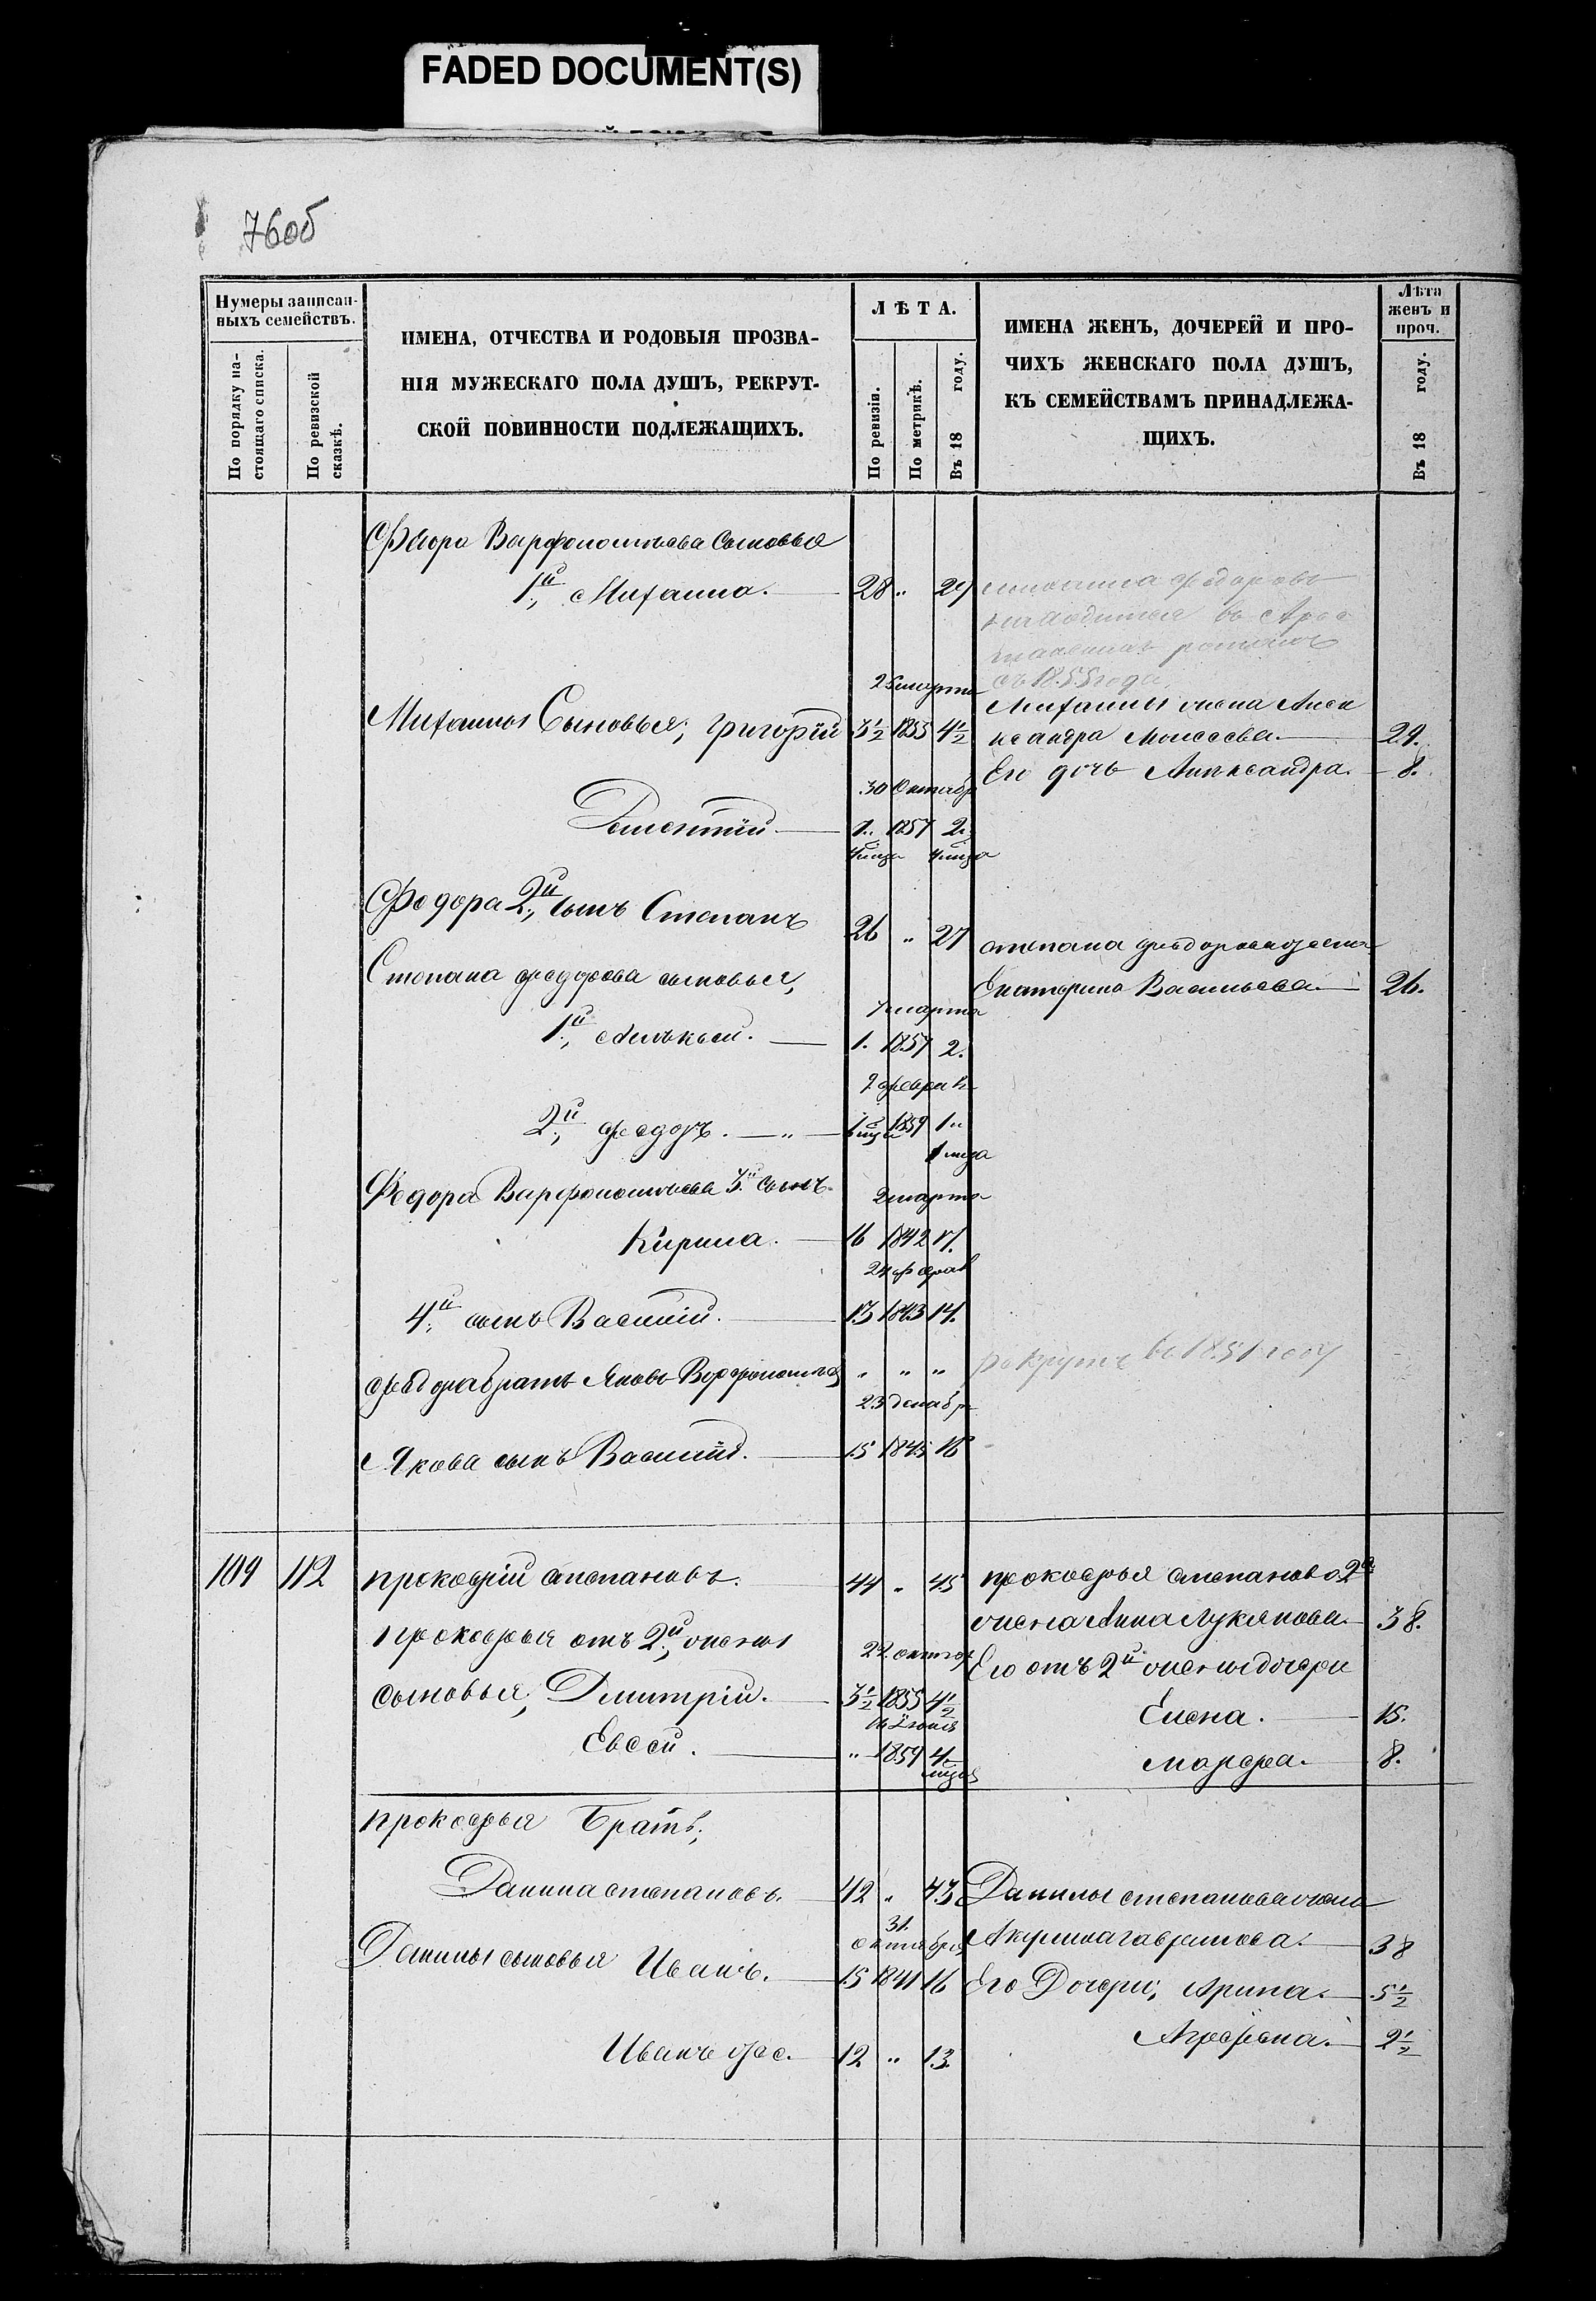 FADED DOCUMENT(S)
760б
Нумеры записан-
ныхъ семействъ.
По порядку на-
стоящаго списка.
По ревизской
сказкѣ.
ИМЕНА, ОТЧЕСТВА И РОДОВЫЯ ПРОЗВА-
НІЯ МУЖЕСКАГО ПОЛА ДУШЪ, РЕКРУТ-
СКОЙ ПОВИННОСТИ ПОДЛЕЖАЩИХЪ.
ЛѢТА.
По ревизіи.
По метрикѣ.
Въ 18 году.
ИМЕНА ЖЕНЪ, ДОЧЕРЕЙ И ПРО-
ЧИХЪ ЖЕНСКАГО ПОЛА ДУШЪ,
КЪ СЕМЕЙСТВАМЪ ПРИНАДЛЕЖА-
ЩИХЪ.
Лѣта
женъ и
проч.
Въ 18 году.
Варфоломѣева Сыновья
1й, Михаила. 28 " 29
находится въ
съ 1855 года
25 марта
Михайлы Сыновья, Григорій 3½ 1855 4½
Михайлы жена Алек
ксандра Моисеева. 29.
Его дочь Александра. 8.
30 Октябр
1. 1857 2.
4 мца 4 мца
Федора 2й, сынъ Степанъ 26 " 27
Степана Федорова жена
Степана Федорова сыновья,
Екатерина Васильева. 26.
7 марта
1й, 1. 1857 2.
9 февраля
2й, Федоръ. " 1859 1"
1 мца
Федора Варфоломѣева 3й сынъ
2 марта
Кирила. 16 1842 17.
24 феврал
4й, сынъ Василій. 13 1843 14.
Федора братъ Яковъ Варфоломѣев " " "
рекрутъ въ 1851 году
23 декабр
Якова сынъ Василій. 15 1845 16
109 112 Прокофій Степановъ. 44 " 45
Прокофья Степанова 2я
жена Анна Лукянова. 38.
Прокофья отъ 2й, жены
22 октяб
Его отъ 2й жены дочери
сыновья, Дмитрій. 3½ 1855 4½
Елена. 15.
16 Іюня
Евсей. " 1859 4
мца
Марфа. 8.
Прокофья Братъ,
Данила Степановъ. 42 " 43
Данилы Степанова жена
31.
октября
Акулина Гаврилова. 38
Данилы сыновья Иванъ. 15 1841 16
Его Дочери, Арина. 5½
Аграфена. 2½
Иванъ же. 12 " 13.